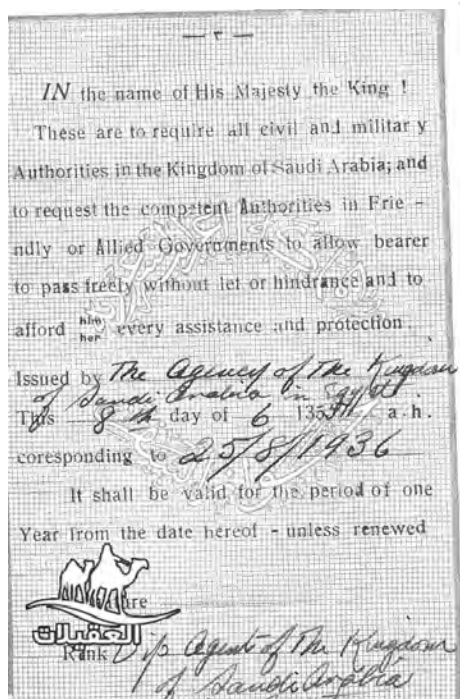 — ٣ —
IN the name of His Majesty the King !
These are to require all civil and militar y
Authorities in the Kingdom of Saudi Arabia; and
to request the competent Authorities in Frie -
ndly or Allied Governments to allow bearer
to pass freely without let or hindrance and to
afford him her every assistance and protection.
Issued by The Agency of The Kingdom
of Saudi Arabia in Egypt.
This 8th day of 6 135 a. h.
coresponding to 25/8/1936
It shall be valid for the period of one
Year from the date hereof - unless renewed
العقيلات
Rank Dip Agent of The Kingdom
of Saudi Arabia